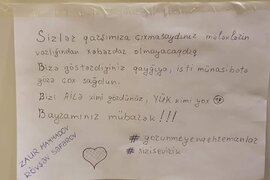 Sizlər qarşımıza çıxmasaydınız mələklərin
varlığından xəbərdar olmayacaqdıq
Bizə göstərdiyiniz qayğıya, isti münasibətə
görə çox sağolun.
Bizi AİLƏ kimi gördünüz, YÜK kimi yox
Bayramınız mübarək!!!
ZAUR MAHMADOV
RÖVŞƏN SƏFƏROV
#görünməyənqəhrəmanlar
#sizisevirik